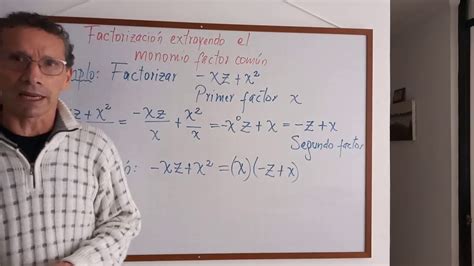 Factorización extrayendo el
monomio factor común
mplo: Factorizar -xz+x²
Primer factor x
z+x²/x = -xz/x + x²/x = -x⁰z+x = -z+x
Segundo factor
ón: -xz+x² = (x)(-z+x)